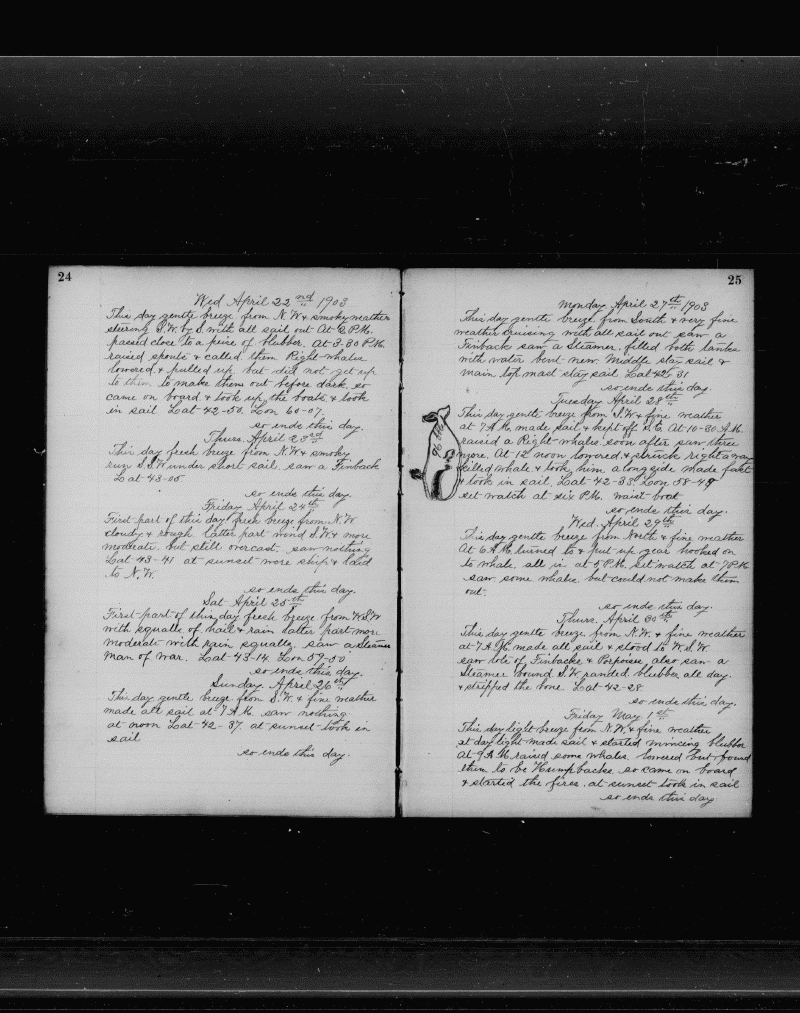 24
Wed April 22nd 1903
This day gentle breeze from N.W. & smoky weather
steering S.W. by S. with all sail out. At 2 P.M.
passed close to a peice of blubber. At 3.30 P.M.
raised spouts & called them Right whales
lowered & pulled up but did not get up
to them to make them out before dark. so
came on board & took up the boats & took
in sail Lat-42-50. Lon 60-07.
so ends this day.
Thurs. April 23rd
This day fresh breeze from N.W. & smoky
run S.S.W. under short sail. saw a Finback
Lat 43-05.
so ends this day.
Friday April 24th
First part of this day fresh breeze from N.W.
cloudy & rough. latter part wind S.W. & more
moderate. but still overcast. saw nothing
Lat-43-41 at sunset wore ship & laid
to N.W.
so ends this day.
Sat April 25th
First part of this day fresh breeze from W.S.W
with squalls of hail & rain latter part more
moderate with rain squalls. saw a Steamer
man of war. Lat-43-14. Lon 59-50
so ends this day.
Sunday April 26th
This day gentle breeze from S.W. & fine weather
made all sail at 7 A.M. saw nothing.
at noon Lat-42-37. at sunset took in
sail
so ends this day.
25
Monday April 27th 1903
This day gentle breeze from South & very fine
weather cruising with all sail out saw a
Finback saw a Steamer. filled both tanks
with water bent new Middle stay sail &
main top mast stay sail Lat 42-31
so ends this day.
Tuesday April 28th
This day gentle breeze from S.W. & fine weather
at 7 A.M. made sail & kept off S.E. At 10-30 A.M.
raised a Right-whales. soon after saw three
more. At 12 noon lowered & struck right away
killed whale & took him alongside made fast
& took in sail. Lat-42-33. Lon 58-48
set watch at six P.M. waist boat
so ends this day.
96 bbls
Wed. April 29th
This day gentle breeze from North & fine weather
At 6 A.M. turned to & put up gear hooked on
to whale. all in at 5 P.M. set watch at 7 P.M
saw some whales but could not make them
out.
so ends this day.
Thurs. April 30th
This day gentle breeze from N.W. & fine weather
at 7 A.M. made all sail & stood to W.S.W.
saw lots of Finbacks & Porpoises also saw a
Steamer bound S.W. panded blubber all day.
& stripped the bone. Lat-42-28
so ends this day.
Friday May 1st
This day light breeze from N.W. & fine weather
at day light made sail & started mincing blubber
At 9 A.M. raised some whales. lowered but found
them to be Humpbacks so came on board
& started the fires. at sunset took in sail
so ends this day